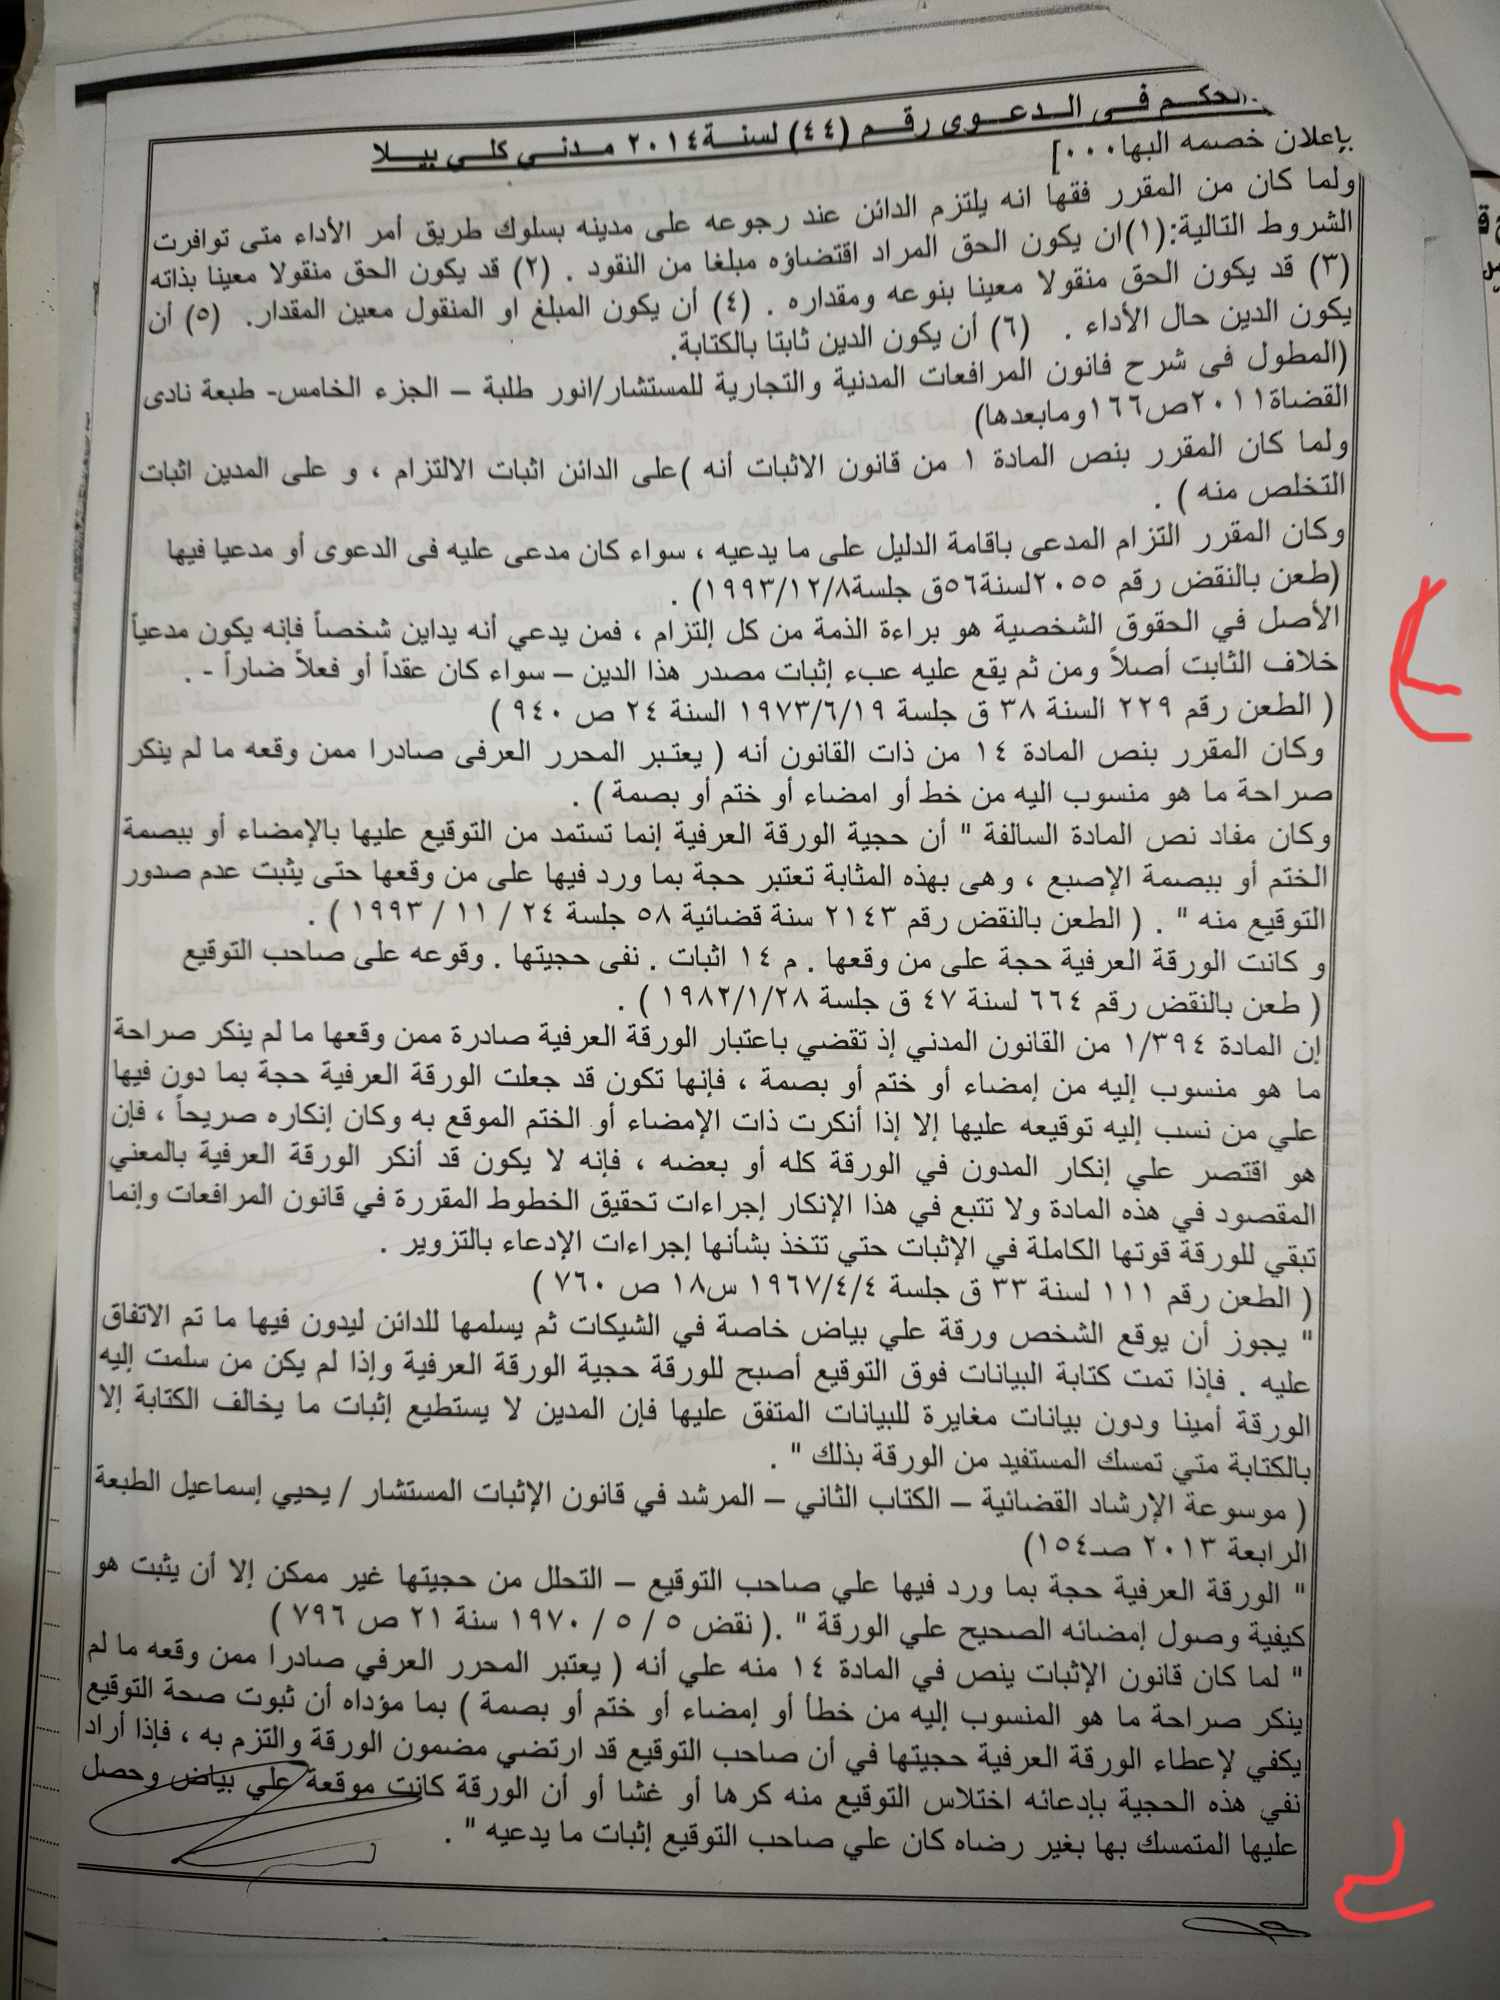 الحكم فى الدعوى رقم (٤٤) لسنة ٢٠١٤ مدنى كلى بيلا
بإعلان خصمه البها٠٠٠]
ولما كان من المقرر فقها انه يلتزم الدائن عند رجوعه على مدينه بسلوك طريق أمر الأداء متى توافرت
الشروط التالية:(١)ان يكون الحق المراد اقتضاؤه مبلغا من النقود . (٢) قد يكون الحق منقولا معينا بذاته
(٣) قد يكون الحق منقولا معينا بنوعه ومقداره . (٤) أن يكون المبلغ او المنقول معين المقدار. (٥) أن
يكون الدين حال الأداء . (٦) أن يكون الدين ثابتا بالكتابة.
(المطول فى شرح قانون المرافعات المدنية والتجارية للمستشار/انور طلبة – الجزء الخامس- طبعة نادى
القضاة٢٠١١ص١٦٦ومابعدها)
ولما كان المقرر بنص المادة ١ من قانون الاثبات أنه )على الدائن اثبات الالتزام ، و على المدين اثبات
التخلص منه ) .
وكان المقرر التزام المدعى باقامة الدليل على ما يدعيه ، سواء كان مدعى عليه فى الدعوى أو مدعيا فيها
(طعن بالنقض رقم ٢٠٥٥لسنة٥٦ق جلسة١٩٩٣/١٢/٨) .
الأصل في الحقوق الشخصية هو براءة الذمة من كل إلتزام ، فمن يدعي أنه يداين شخصاً فإنه يكون مدعياً
خلاف الثابت أصلاً ومن ثم يقع عليه عبء إثبات مصدر هذا الدين – سواء كان عقداً أو فعلاً ضاراً - .
( الطعن رقم ٢٢٩ السنة ٣٨ ق جلسة ١٩٧٣/٦/١٩ السنة ٢٤ ص ٩٤٠ )
وكان المقرر بنص المادة ١٤ من ذات القانون أنه ( يعتبر المحرر العرفى صادرا ممن وقعه ما لم ينكر
صراحة ما هو منسوب اليه من خط أو امضاء أو ختم أو بصمة ) .
وكان مفاد نص المادة السالفة " أن حجية الورقة العرفية إنما تستمد من التوقيع عليها بالإمضاء أو ببصمة
الختم أو ببصمة الإصبع ، وهى بهذه المثابة تعتبر حجة بما ورد فيها على من وقعها حتى يثبت عدم صدور
التوقيع منه " . ( الطعن بالنقض رقم ٢١٤٣ سنة قضائية ٥٨ جلسة ٢٤ / ١١ / ١٩٩٣ ) .
و كانت الورقة العرفية حجة على من وقعها . م ١٤ اثبات . نفى حجيتها . وقوعه على صاحب التوقيع
( طعن بالنقض رقم ٦٦٤ لسنة ٤٧ ق جلسة ١٩٨٢/١/٢٨ ) .
إن المادة ١/٣٩٤ من القانون المدني إذ تقضي باعتبار الورقة العرفية صادرة ممن وقعها ما لم ينكر صراحة
ما هو منسوب إليه من إمضاء أو ختم أو بصمة ، فإنها تكون قد جعلت الورقة العرفية حجة بما دون فيها
علي من نسب إليه توقيعه عليها إلا إذا أنكرت ذات الإمضاء أو الختم الموقع به وكان إنكاره صريحاً ، فإن
هو اقتصر علي إنكار المدون في الورقة كله أو بعضه ، فإنه لا يكون قد أنكر الورقة العرفية بالمعني
المقصود في هذه المادة ولا تتبع في هذا الإنكار إجراءات تحقيق الخطوط المقررة في قانون المرافعات وإنما
تبقي للورقة قوتها الكاملة في الإثبات حتي تتخذ بشأنها إجراءات الإدعاء بالتزوير .
( الطعن رقم ١١١ لسنة ٣٣ ق جلسة ١٩٦٧/٤/٤ س١٨ ص ٧٦٠ )
" يجوز أن يوقع الشخص ورقة علي بياض خاصة في الشيكات ثم يسلمها للدائن ليدون فيها ما تم الاتفاق
عليه . فإذا تمت كتابة البيانات فوق التوقيع أصبح للورقة حجية الورقة العرفية وإذا لم يكن من سلمت إليه
الورقة أمينا ودون بيانات مغايرة للبيانات المتفق عليها فإن المدين لا يستطيع إثبات ما يخالف الكتابة إلا
بالكتابة متي تمسك المستفيد من الورقة بذلك " .
( موسوعة الإرشاد القضائية – الكتاب الثاني – المرشد في قانون الإثبات المستشار / يحيي إسماعيل الطبعة
الرابعة ٢٠١٣ صـ١٥٤)
" الورقة العرفية حجة بما ورد فيها علي صاحب التوقيع – التحلل من حجيتها غير ممكن إلا أن يثبت هو
كيفية وصول إمضائه الصحيح علي الورقة " .( نقض ٥ / ٥ / ١٩٧٠ سنة ٢١ ص ٧٩٦ )
" لما كان قانون الإثبات ينص في المادة ١٤ منه علي أنه ( يعتبر المحرر العرفي صادرا ممن وقعه ما لم
ينكر صراحة ما هو المنسوب إليه من خطأ أو إمضاء أو ختم أو بصمة ) بما مؤداه أن ثبوت صحة التوقيع
يكفي لإعطاء الورقة العرفية حجيتها في أن صاحب التوقيع قد ارتضي مضمون الورقة والتزم به ، فإذا أراد
نفي هذه الحجية بإدعائه اختلاس التوقيع منه كرها أو غشا أو أن الورقة كانت موقعة علي بياض وحصل
عليها المتمسك بها بغير رضاه كان علي صاحب التوقيع إثبات ما يدعيه " .